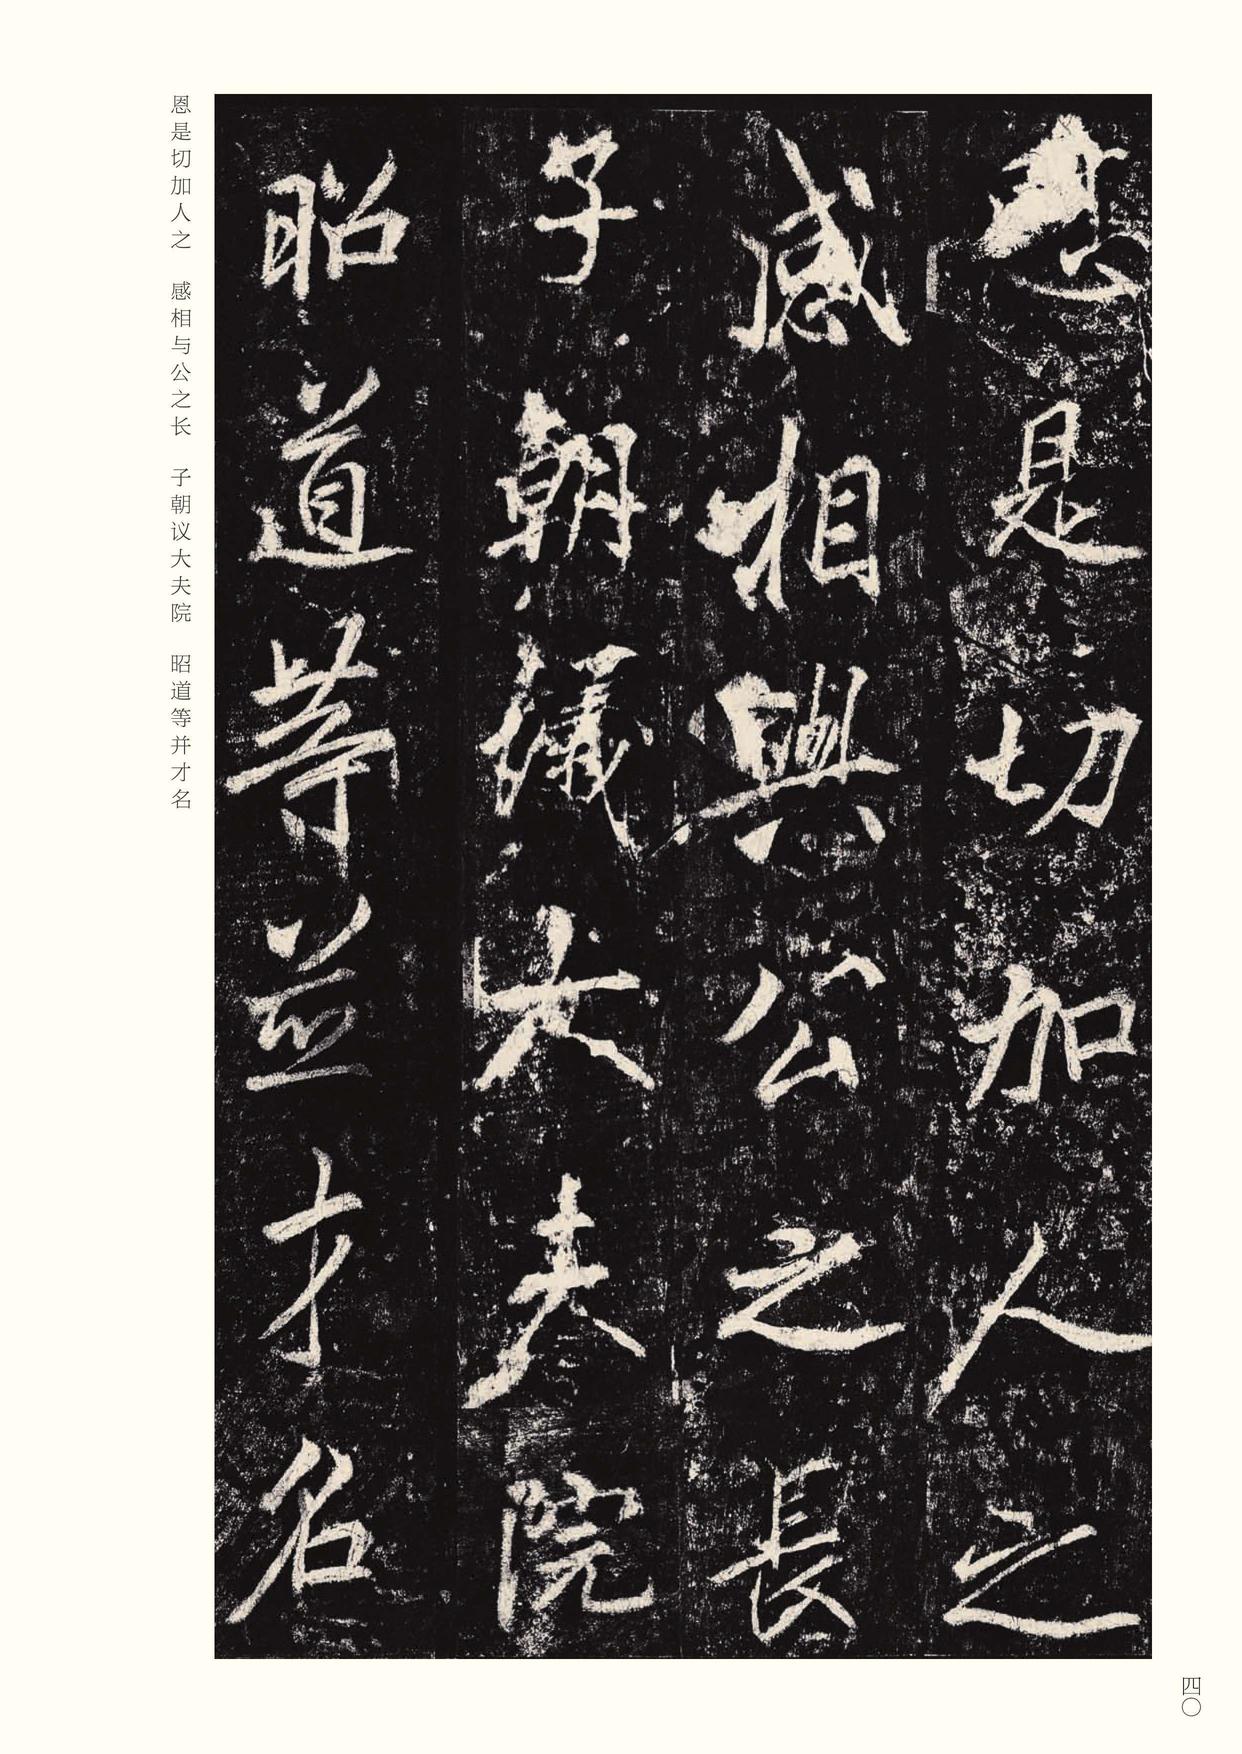 恩是切加人之
感相與公之長
子朝議大夫院
昭道等並才名
恩是切加人之　感相与公之长　子朝议大夫院　昭道等并才名
四〇